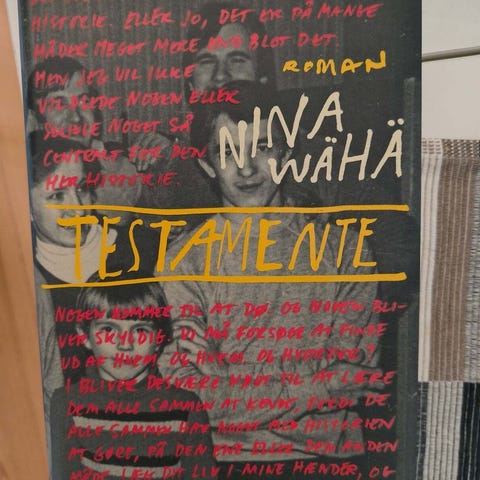 HISTORIE. ELLER JO, DET ER PÅ MANGE
MÅDER MEGET MERE END BLOT DET.
MEN JEG VIL IKKE
VILDLEDE NOGEN ELLER
SKJULE NOGET SÅ
CENTRALT FOR DEN
HER HISTORIE.
ROMAN
NINA
WÄHÄ
TESTAMENTE
NOGEN KOMMER TIL AT DØ. OG NOGEN BLI-
VER SKYLDIG. VI MÅ FORSØGE AT FINDE
UD AF HVEM. OG HVEM. OG HVORFOR?
I BLIVER DESVÆRRE NØDT TIL AT LÆRE
DEM ALLE SAMMEN AT KENDE, FORDI DE
ALLE SAMMEN HAR NOGET MED HISTORIEN
AT GØRE, PÅ DEN ENE ELLER DEN ANDEN
MÅDE. LÆG DIT LIV I MINE HÆNDER, OG